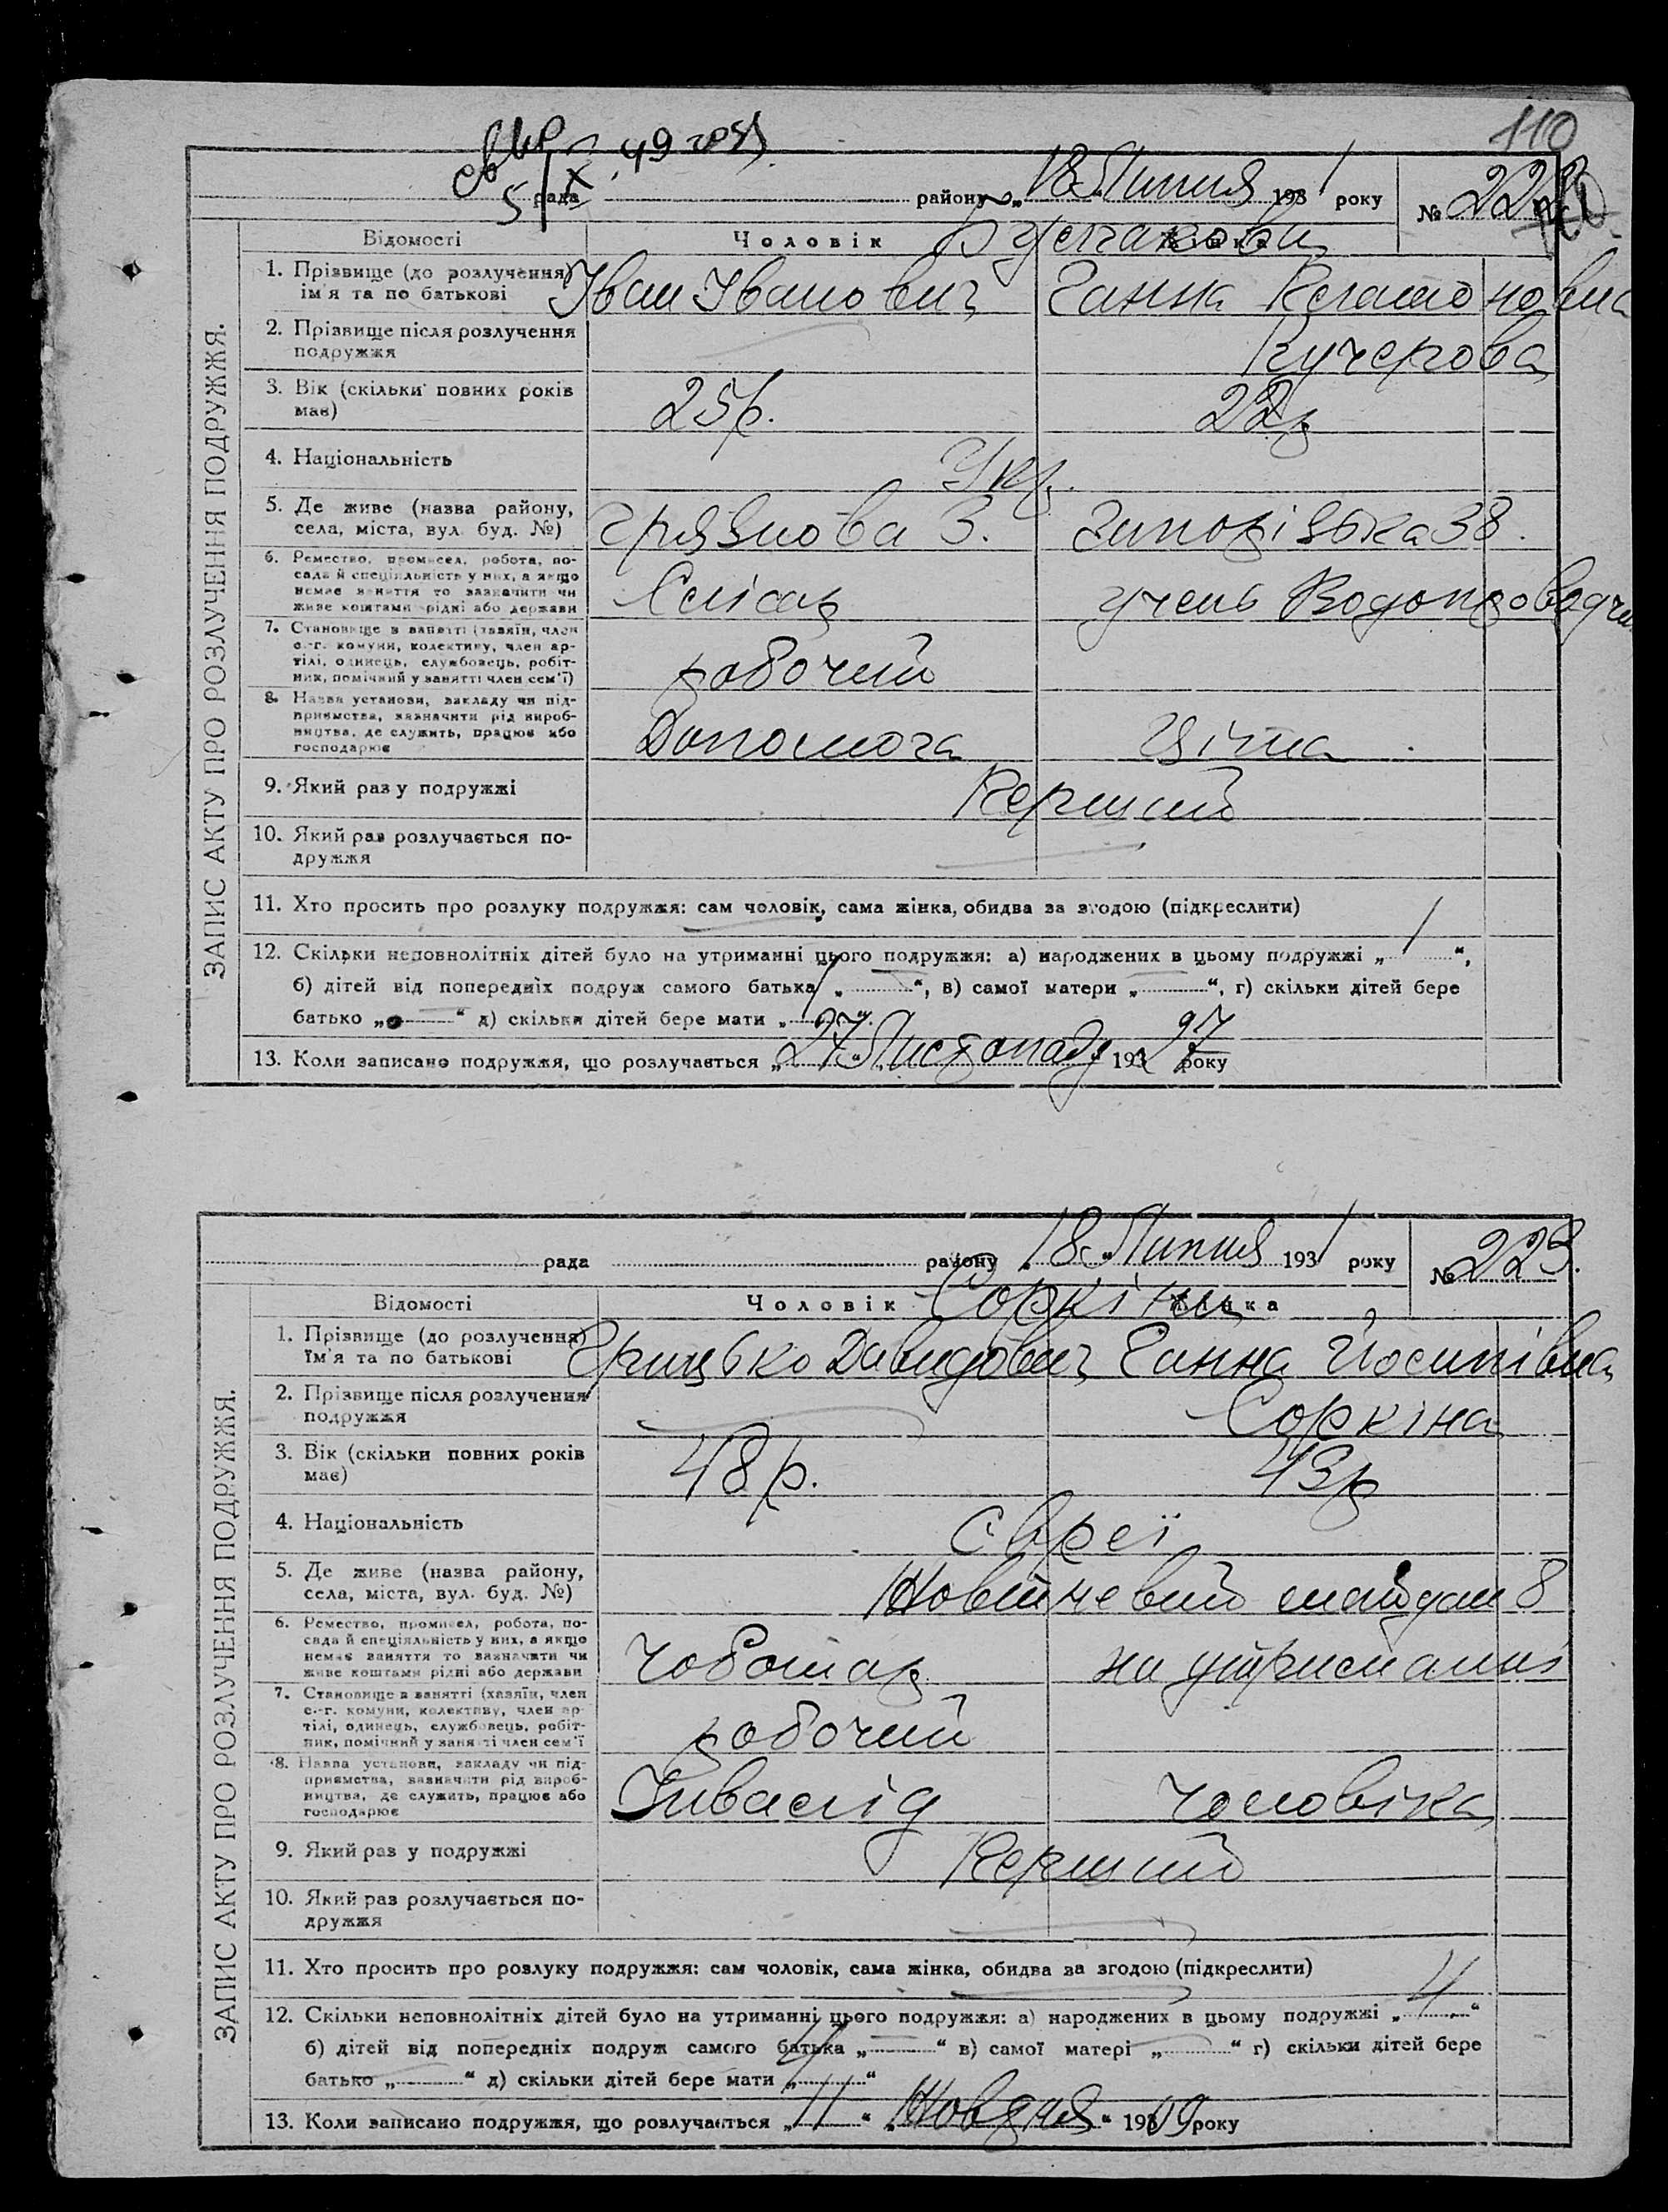 110
5/X 49
рада району „18“ Липня 1931 року № 222
Відомості Чоловік Жінка
1. Прізвище (до розлучення) ім'я та по батькові Іван Іванович Ганна
2. Прізвище після розлучення подружжя Кучерова
3. Вік (скільки повних років має) 25 р. 22 р
4. Національність Укр.
5. Де живе (назва району, села, міста, вул. буд. №) Грязнова 3. 38.
6. Ремество, промисел, робота, посада й спеціяльність у них, а якщо немає заняття то зазначити чи живе коштами рідні або держави Слісар учень
7. Становище в занятті (хазяїн, член с.-г. комуни, колективу, член артілі, одинець, службовець, робітник, помічний у занятті член сем'ї) робочий
8. Назва установи, закладу чи підприємства, зазначити рід виробництва, де служить, працює або господарює Допомога
9. Який раз у подружжі Перший
10. Який раз розлучається подружжя
11. Хто просить про розлуку подружжя: сам чоловік, сама жінка, обидва за згодою (підкреслити)
12. Скільки неповнолітніх дітей було на утриманні цього подружжя: а) народжених в цьому подружжі „1“,
б) дітей від попередніх подруж самого батька „ “, в) самої матери „ “, г) скільки дітей бере
батько „ “ д) скільки дітей бере мати „1“.
13. Коли записано подружжя, що розлучається „27“ Листопаду 1927 року
ЗАПИС АКТУ ПРО РОЗЛУЧЕННЯ ПОДРУЖЖЯ.
рада району „18“ Липня 1931 року № 223.
Відомості Чоловік Жінка
Соркіни
1. Прізвище (до розлучення) ім'я та по батькові Грицько Давидович Ганна Йосипівна
2. Прізвище після розлучення подружжя Соркіна
3. Вік (скільки повних років має) 48 р. 43 р
4. Національність Євреї
5. Де живе (назва району, села, міста, вул. буд. №) майдан 8
6. Ремество, промисел, робота, посада й спеціяльність у них, а якщо немає заняття то зазначити чи живе коштами рідні або держави Чоботар на утриманні
7. Становище в занятті (хазяїн, член с.-г. комуни, колективу, член артілі, одинець, службовець, робітник, помічний у занятті член сем'ї робочий
8. Назва установи, закладу чи підприємства, зазначити рід виробництва, де служить, працює або господарює Інвалід чоловіка
9. Який раз у подружжі Перший
10. Який раз розлучається подружжя
11. Хто просить про розлуку подружжя: сам чоловік, сама жінка, обидва за згодою (підкреслити)
12. Скільки неповнолітніх дітей було на утриманні цього подружжя: а) народжених в цьому подружжі „4“
б) дітей від попередніх подруж самого батька „ “ в) самої матері „ “ г) скільки дітей бере
батько „ “ д) скільки дітей бере мати „4“
13. Коли записано подружжя, що розлучається „11“ „Жовтня“ 1909 року
ЗАПИС АКТУ ПРО РОЗЛУЧЕННЯ ПОДРУЖЖЯ.